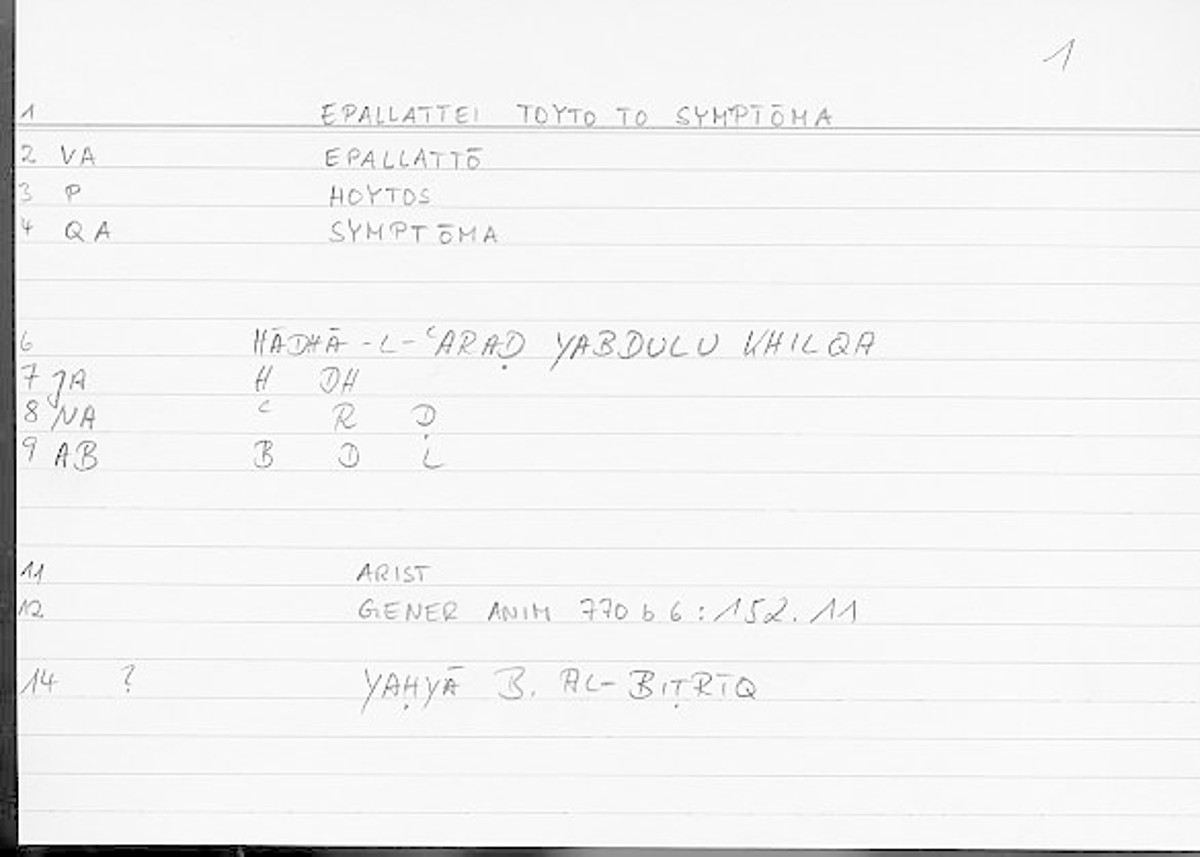 1
1 EPALLATTEI TOYTO TO SYMPTŌMA
2 VA EPALLATTŌ
3 P HOYTOS
4 QA SYMPTŌMA
6 HĀDHĀ-L-ʿARAḌ YABDULU KHILQA
7 JA H DH
8 NA ʿ R Ḍ
9 AB B D L
11 ARIST
12 GENER ANIM 770 b 6 : 152.11
14 ? YAḤYĀ B. AL-BIṬRĪQ